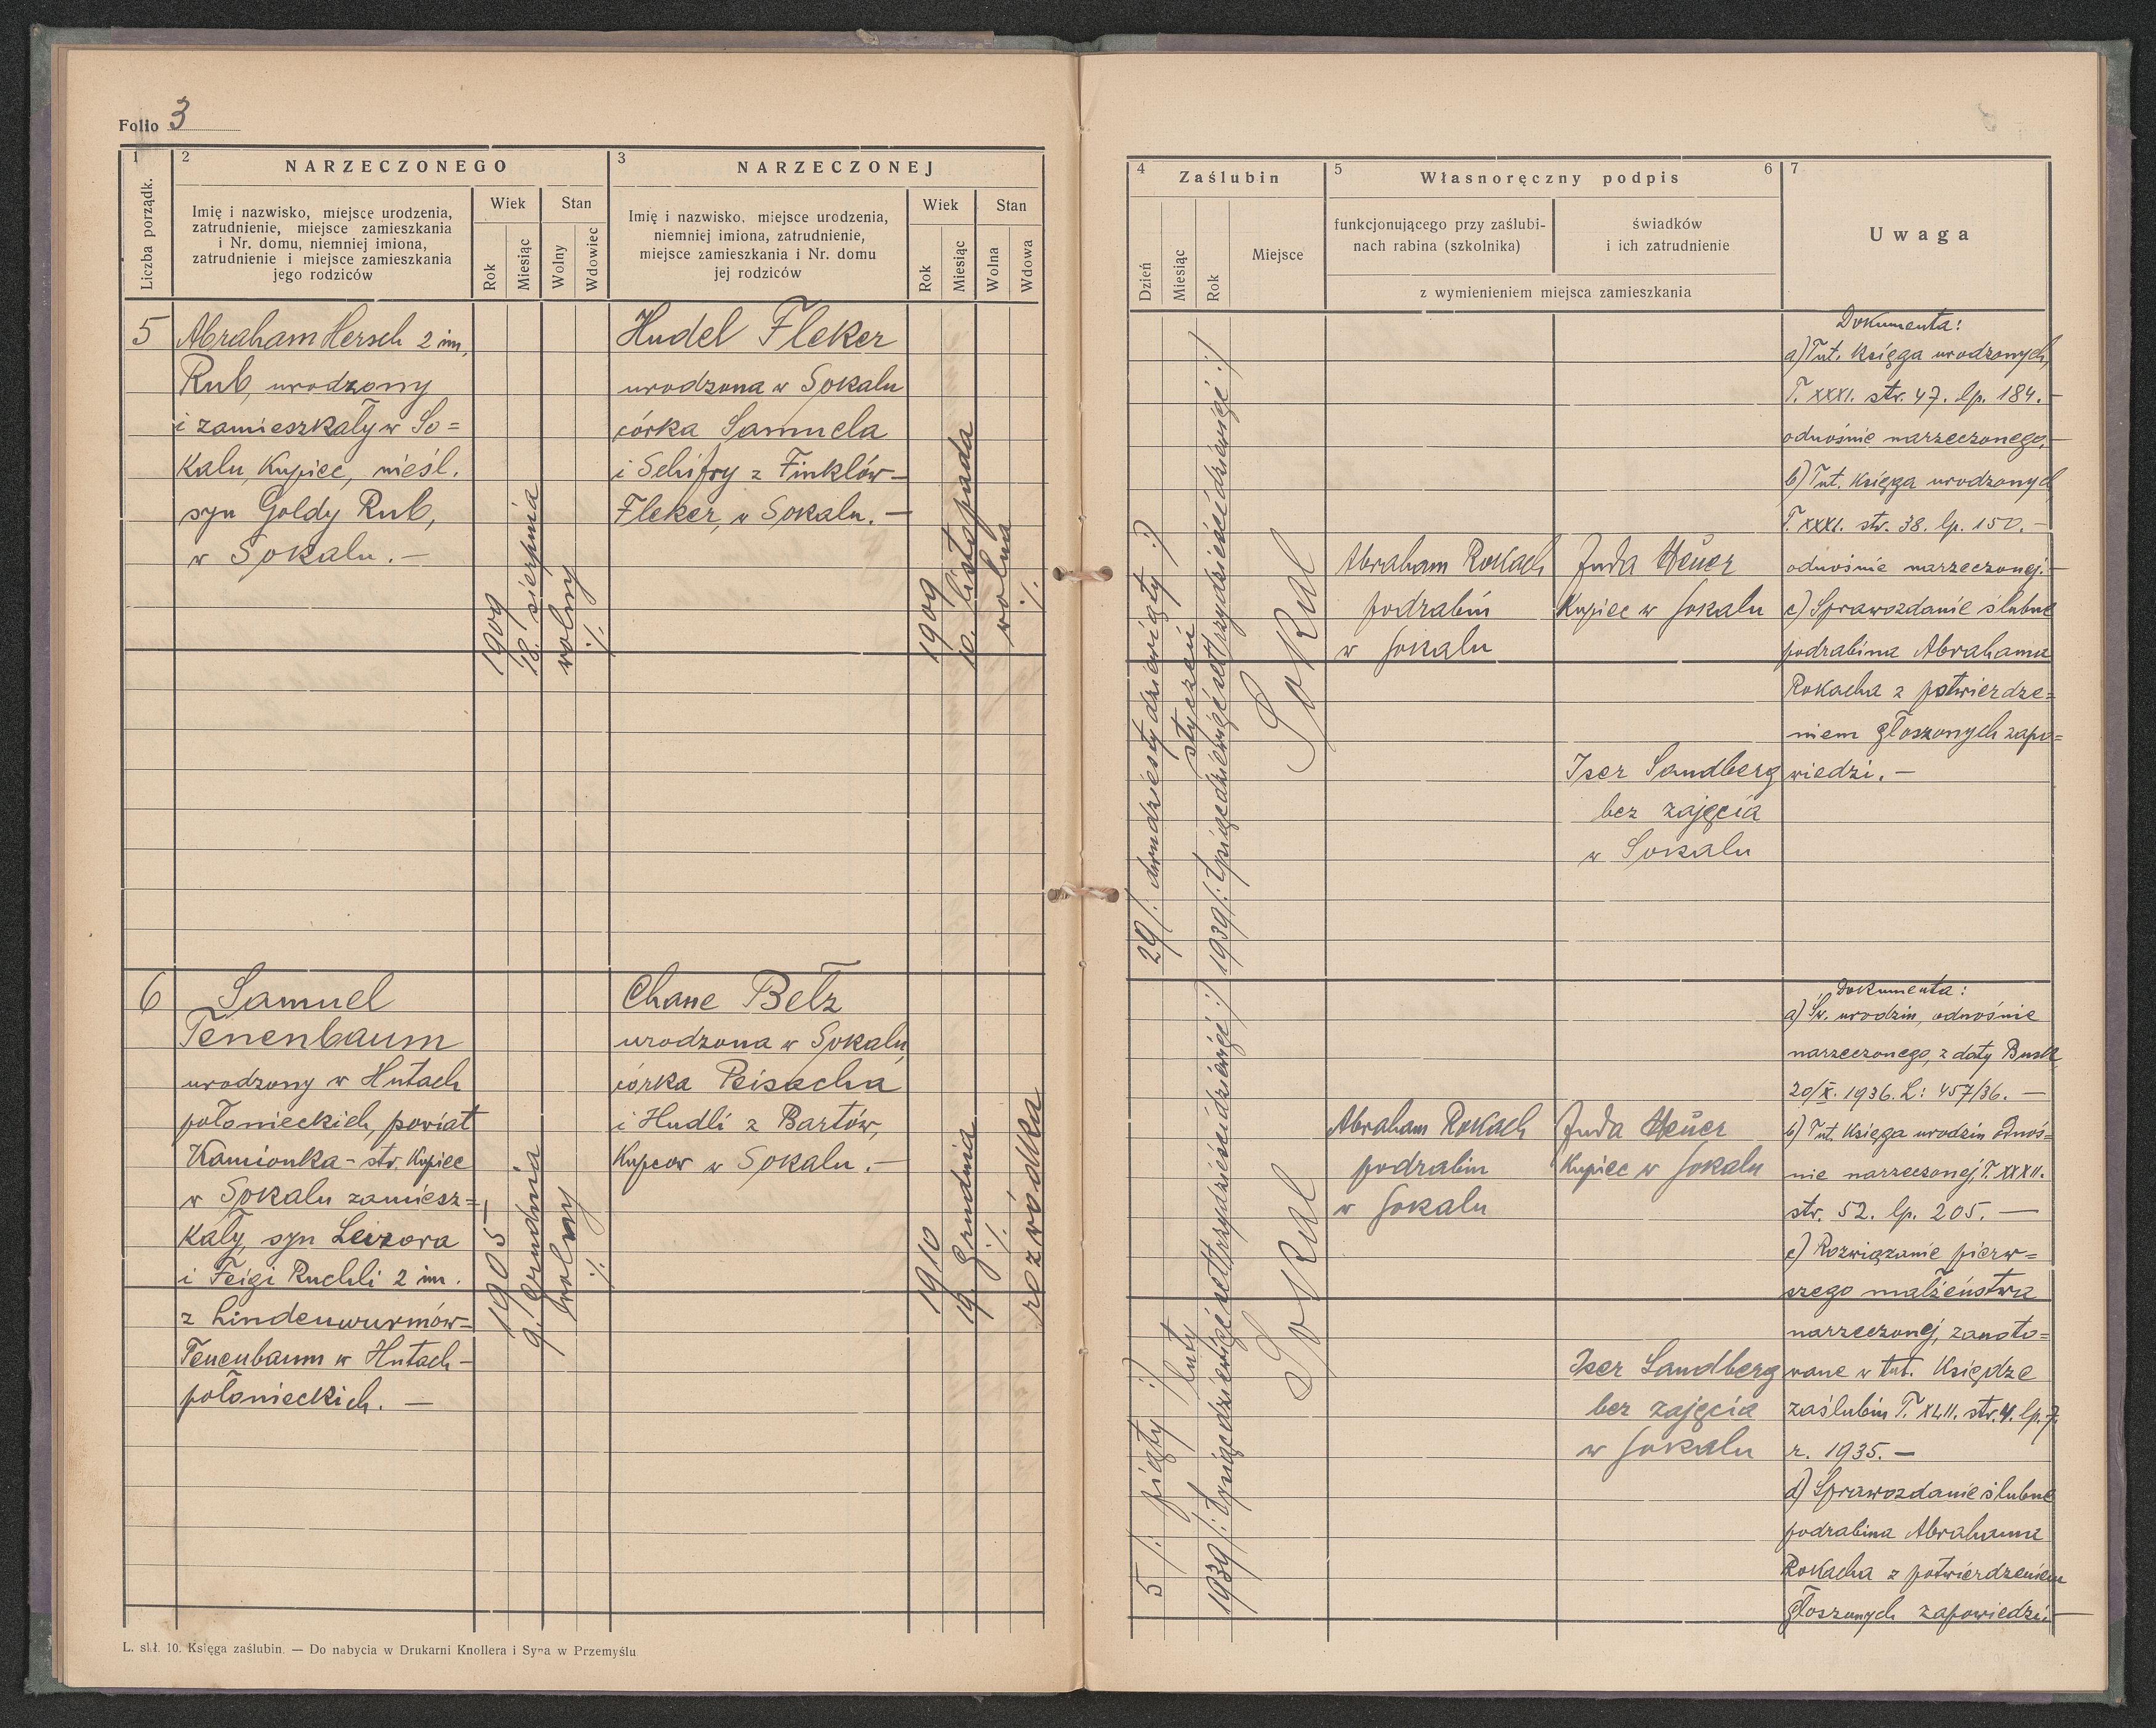 Folio 3
1
2
NARZECZONEGO
3
NARZECZONEJ
Liczba porządk.
Imię i nazwisko, miejsce urodzenia,
zatrudnienie, miejsce zamieszkania
i Nr. domu, niemniej imiona,
zatrudnienie i miejsce zamieszkania
jego rodziców
Wiek
Stan
Rok
Miesiąc
Wolny
Wdowiec
Imię i nazwisko, miejsce urodzenia,
niemniej imiona, zatrudnienie,
miejsce zamieszkania i Nr. domu
jej rodziców
Wiek
Stan
Rok
Miesiąc
Wolna
Wdowa
5
Abraham Hersch 2 im,
Rub, urodzony
i zamieszkały w So=
kalu, Kupiec, nieśl.
syn Goldy Rub,
w Sokalu. —
1909
18. sierpnia
wolny
·/.
Hudel Fleker
urodzona w Sokalu
córka Samuela
i Schifry z Finklów—
Fleker, w Sokalu. —
1909
10. listopada
wolna
·/.
6
Samuel
Tenenbaum
urodzony w Hutach
połonieckich, powiat
Kamionka - str. Kupiec
w Sokalu zamiesz=
kały, syn Leizora
i Feigi Ruchli 2 im.
z Lindenwurmów=
Tenenbaum w Hutach-
połonieckich. —
1905
9. grudnia
wolny
·/.
Chane Bełz
urodzona w Sokalu,
córka Peisacha
i Hudli z Bartów,
Kupcow w Sokalu. —
1910
19. Grudnia
·/.
rozwódka
L. skł. 10. Księga zaślubin. — Do nabycia w Drukarni Knollera i Syna w Przemyślu
4
Zaślubin
5
Własnoręczny podpis
6
7
Dzień
Miesiąc
Rok
Miejsce
funkcjonującego przy zaślubi-
nach rabina (szkolnika)
świadków
i ich zatrudnienie
z wymienieniem miejsca zamieszkania
Uwaga
29 /: dwudziesty dziewiąty :/
styczeń
1939 /: tysiąc dziewięćset trzydzieści dziewięć :/
Sokal
Abraham Rokach
podrabin
w Sokalu
Juda Heuer
Kupiec w Sokalu
Iser Sandberg
bez zajęcia
w Sokalu
Dokumenta:
a) Tut. Księga urodzonych,
T. XXXI. str. 47. lp. 184. —
odnośnie narzeczonego, —
b) Tut. Księga urodzonych
T. XXXI. str. 38. lp. 150. —
odnośnie narzeczonej. —
c) Sprawozdanie ślubne
podrabina Abrahama
Rokacha z potwierdze=
niem głoszonych zapo=
wiedzi. —
5 /: piąty :/
luty
1939 /: tysiąc dziewięćset trzydzieści dziewięć :/
Sokal
Abraham Rokach
podrabin
w Sokalu
Juda Heuer
Kupiec w Sokalu
Iser Sandberg
bez zajęcia
w Sokalu
Dokumenta:
a) Św. urodzin, odnośnie
narzeczonego, z daty Busk
20/X. 1936. L: 457/36. —
b) Tut. Księga urodzin odnoś=
nie narzeczonej, T. XXXII.
str. 52. lp. 205. —
c) Rozwiązanie pierw=
szego małżeństwa
narzeczonej, zanoto=
wane w tut. Księdze
zaślubin T. XLII. str. 4. lp. 7.
r. 1935. —
d) Sprawozdanie ślubne
podrabina Abrahama
Rokacha z potwierdzeniem
głoszonych zapowiedzi. —